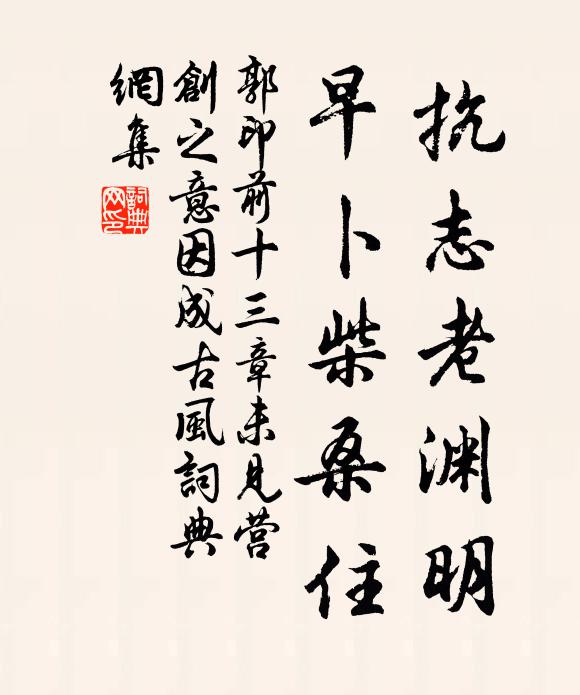 抗志老渊明
早卜柴桑住
郭印前十三章未見营
創之意因成古風詞典
網集
詞典
网印